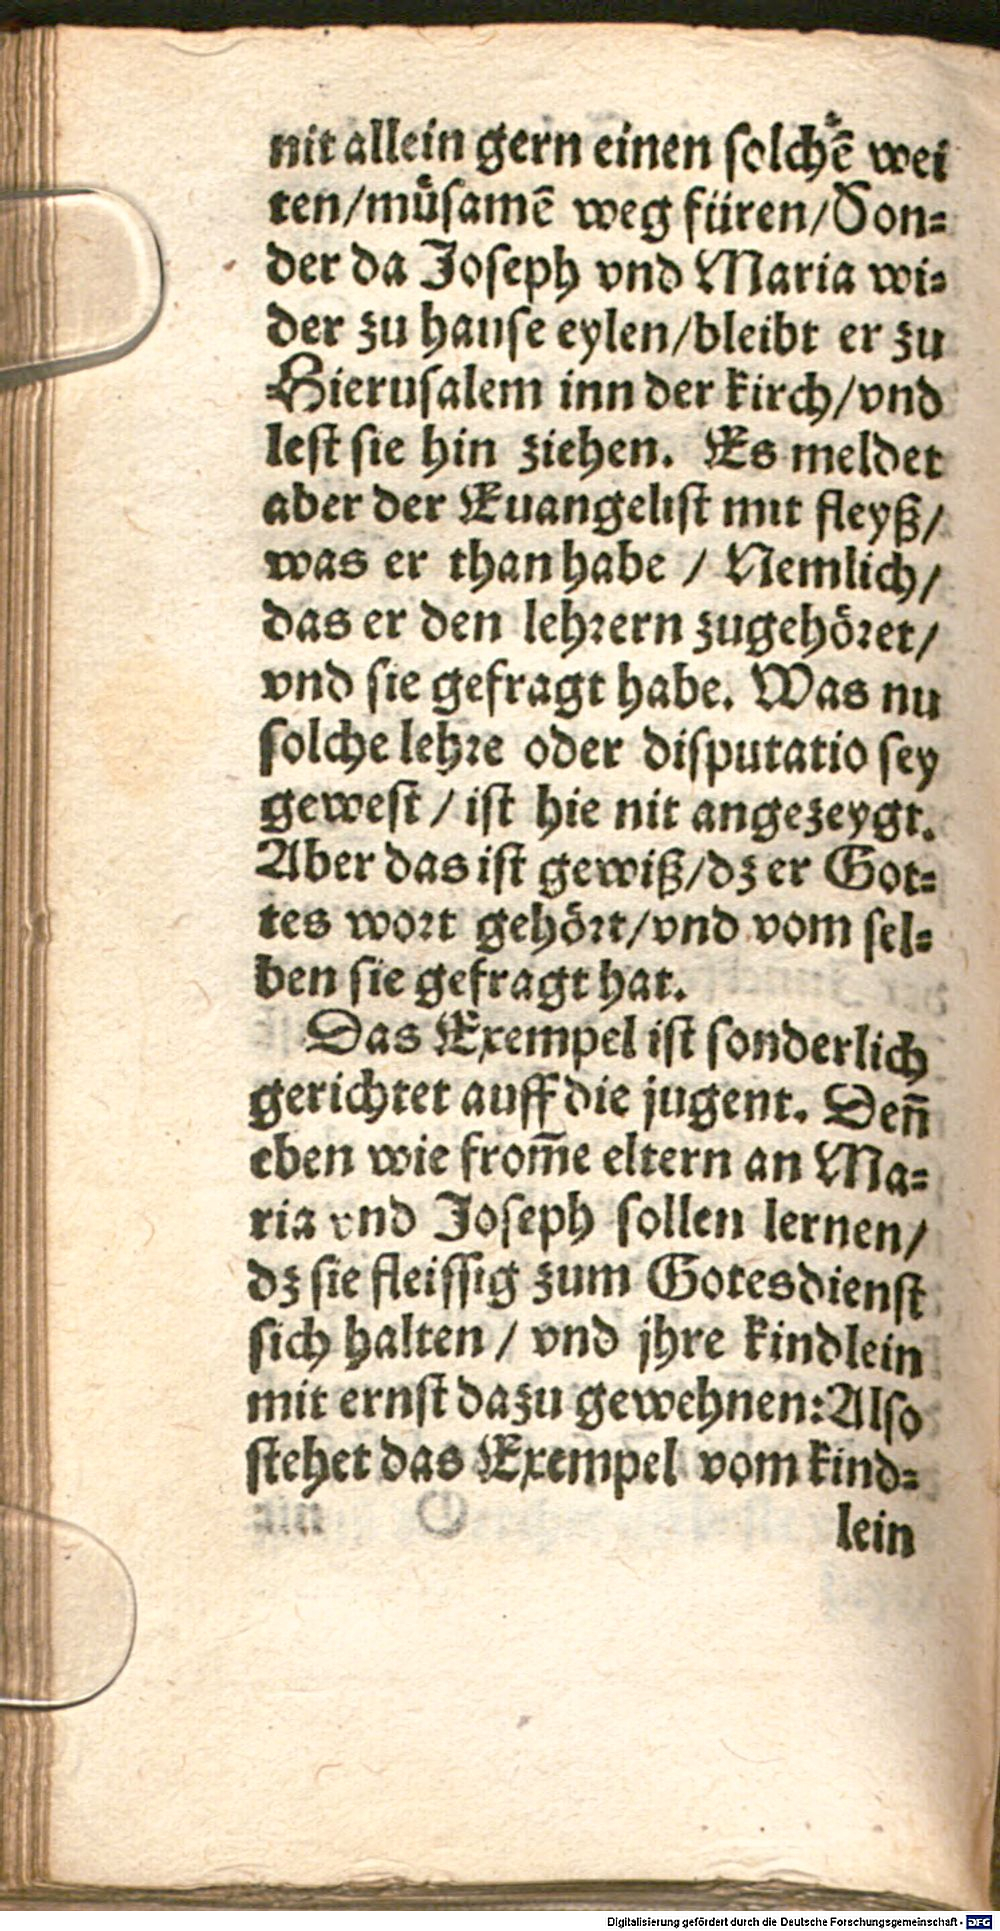 nit allein gern einen solchẽ wei
ten/müsamẽ weg füren/Son-
der da Joseph vnd Maria wi-
der zu hause eylen/bleibt er zu
Hierusalem inn der kirch/vnd
lest sie hin ziehen. Es meldet
aber der Euangelist mit fleyß/
was er than habe / Nemlich/
das er den lehrern zugehöret/
vnd sie gefragt habe. Was nu
solche lehre oder disputatio sey
gewest / ist hie nit angezeygt.
Aber das ist gewiß/dz er Got-
tes wort gehört/vnd vom sel-
ben sie gefragt hat.
Das Exempel ist sonderlich
gerichtet auff die jugent. Deñ
eben wie from̃e eltern an Ma-
ria vnd Joseph sollen lernen/
dz sie fleissig zum Gotesdienst
sich halten / vnd jhre kindlein
mit ernst dazu gewehnen: Also
stehet das Exempel vom kind-
lein
Digitalisierung gefördert durch die Deutsche Forschungsgemeinschaft - DFG